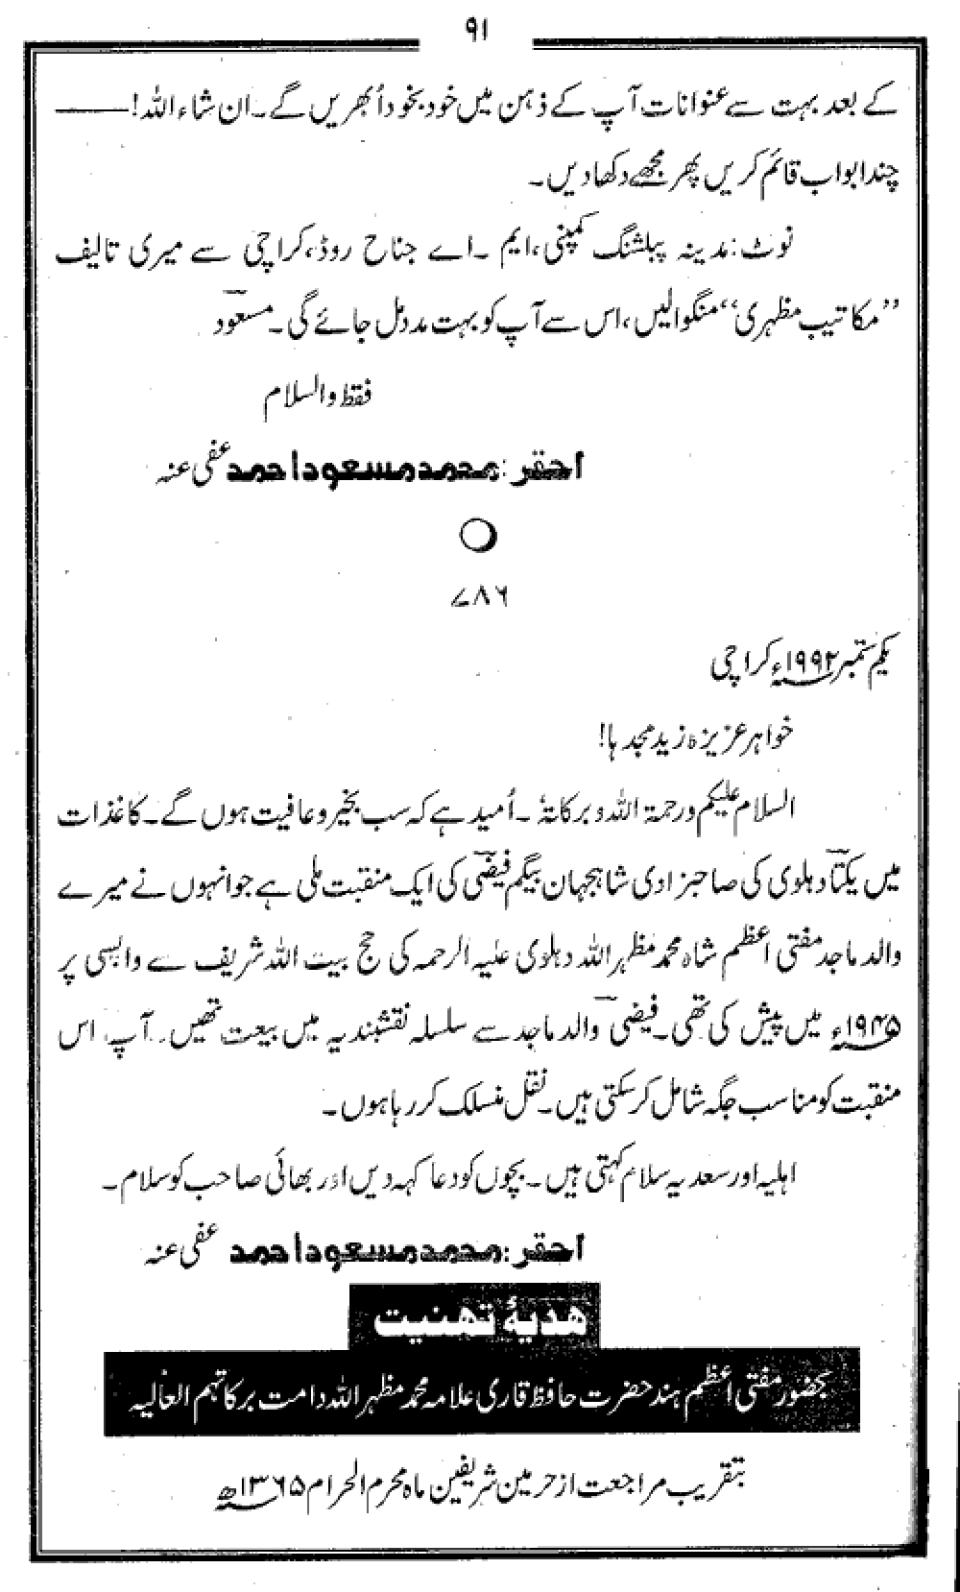 ۹۱
کے بعد بہت سے عنوانات آپ کے ذہن میں خود بخود اُبھریں گے۔ ان شاء اللہ! ———
چند ابواب قائم کریں پھر مجھے دکھا دیں۔
نوٹ: مدینہ پبلشنگ کمپنی، ایم ۔ اے جناح روڈ، کراچی سے میری تالیف
’’مکاتیب مظہری‘‘ منگوالیں، اس سے آپ کو بہت مدد مل جائے گی۔ مسعودؔ
فقط والسلام
احقر: محمد مسعود احمد عفی عنہ
۷۸۶
یکم ستمبر ۱۹۹۲ء کراچی
خواہر عزیزہ زید مجدہا!
السلام علیکم ورحمۃ اللہ وبرکاتہٗ ۔ اُمید ہے کہ سب بخیر و عافیت ہوں گے۔ کاغذات
میں یکتاؔ دہلوی کی صاحبزادی شاہجہان بیگم فیضیؔ کی ایک منقبت ملی ہے جو انہوں نے میرے
والد ماجد مفتی اعظم شاہ محمد مظہر اللہ دہلوی علیہ الرحمہ کی حج بیت اللہ شریف سے واپسی پر
۱۹۴۵ء میں پیش کی تھی۔ فیضیؔ والد ماجد سے سلسلہ نقشبندیہ میں بیعت تھیں۔ آپ اس
منقبت کو مناسب جگہ شامل کر سکتی ہیں۔ نقل منسلک کر رہا ہوں۔
اہلیہ اور سعدیہ سلام کہتی ہیں۔ بچوں کو دعا کہہ دیں اور بھائی صاحب کو سلام۔
احقر: محمد مسعود احمد عفی عنہ
ھدیۂ تھنیت
بحضور مفتی اعظم ہند حضرت حافظ قاری علامہ محمد مظہر اللہ دامت برکاتہم العالیہ
بتقریب مراجعت از حرمین شریفین ماہ محرم الحرام ۱۳۶۵ھ